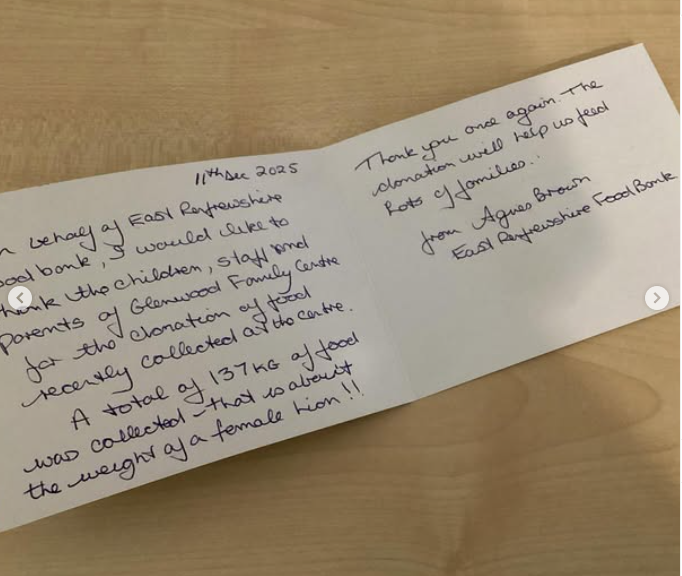 11th Dec 2025
n behalf of East Renfrewshire
ood bank, I would like to
hank the children, staff and
Parents of Glenwood Family Centre
for the donation of food
recently collected at the centre.
A total of 137KG of food
was collected - that is about
the weight of a female lion!!
Thank you once again. The
donation will help us feed
lots of families..
from Agnes Brown
East Renfrewshire Food Bank